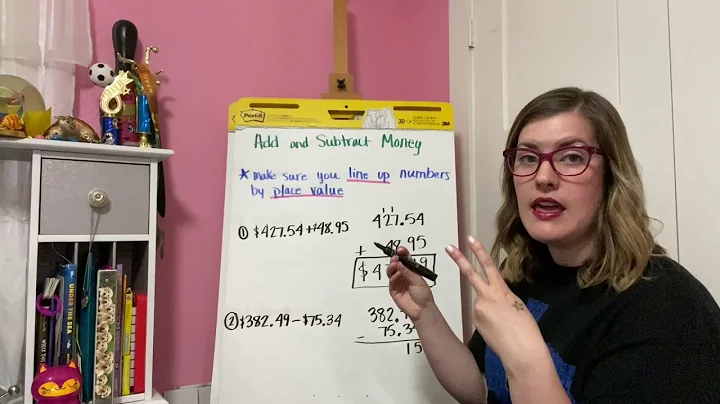 Post-it
Add and Subtract Money
* make sure you line up numbers
by place value
① $427.54 + $48.95
1 1
427.54
+ 48.95
$4
② $382.49 - $75.34
382.
- 75.3
15
UNDER THE SEA